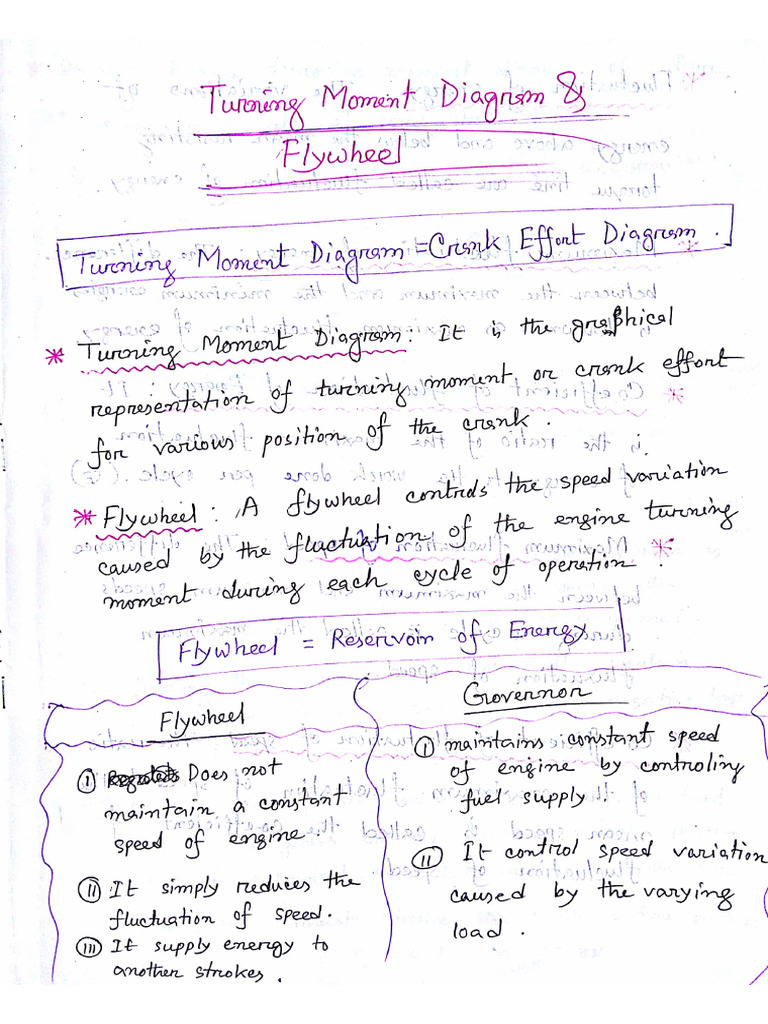 Turning Moment Diagram &
Flywheel
Turning Moment Diagram = Crank Effort Diagram.
* Turning Moment Diagram: It is the graphical
representation of turning moment or crank effort
for various position of the crank.
* Flywheel: A flywheel controls the speed variation
caused by the fluctuation of the engine turning
moment during each cycle of operation.
Flywheel = Reservoir of Energy
Flywheel
(I) Does not
maintain a constant
speed of engine
(II) It simply reduces the
fluctuation of speed.
(III) It supply energy to
another strokes.
Governor
(I) maintains constant speed
of engine by controling
fuel supply.
(II) It control speed variation
caused by the varying
load.